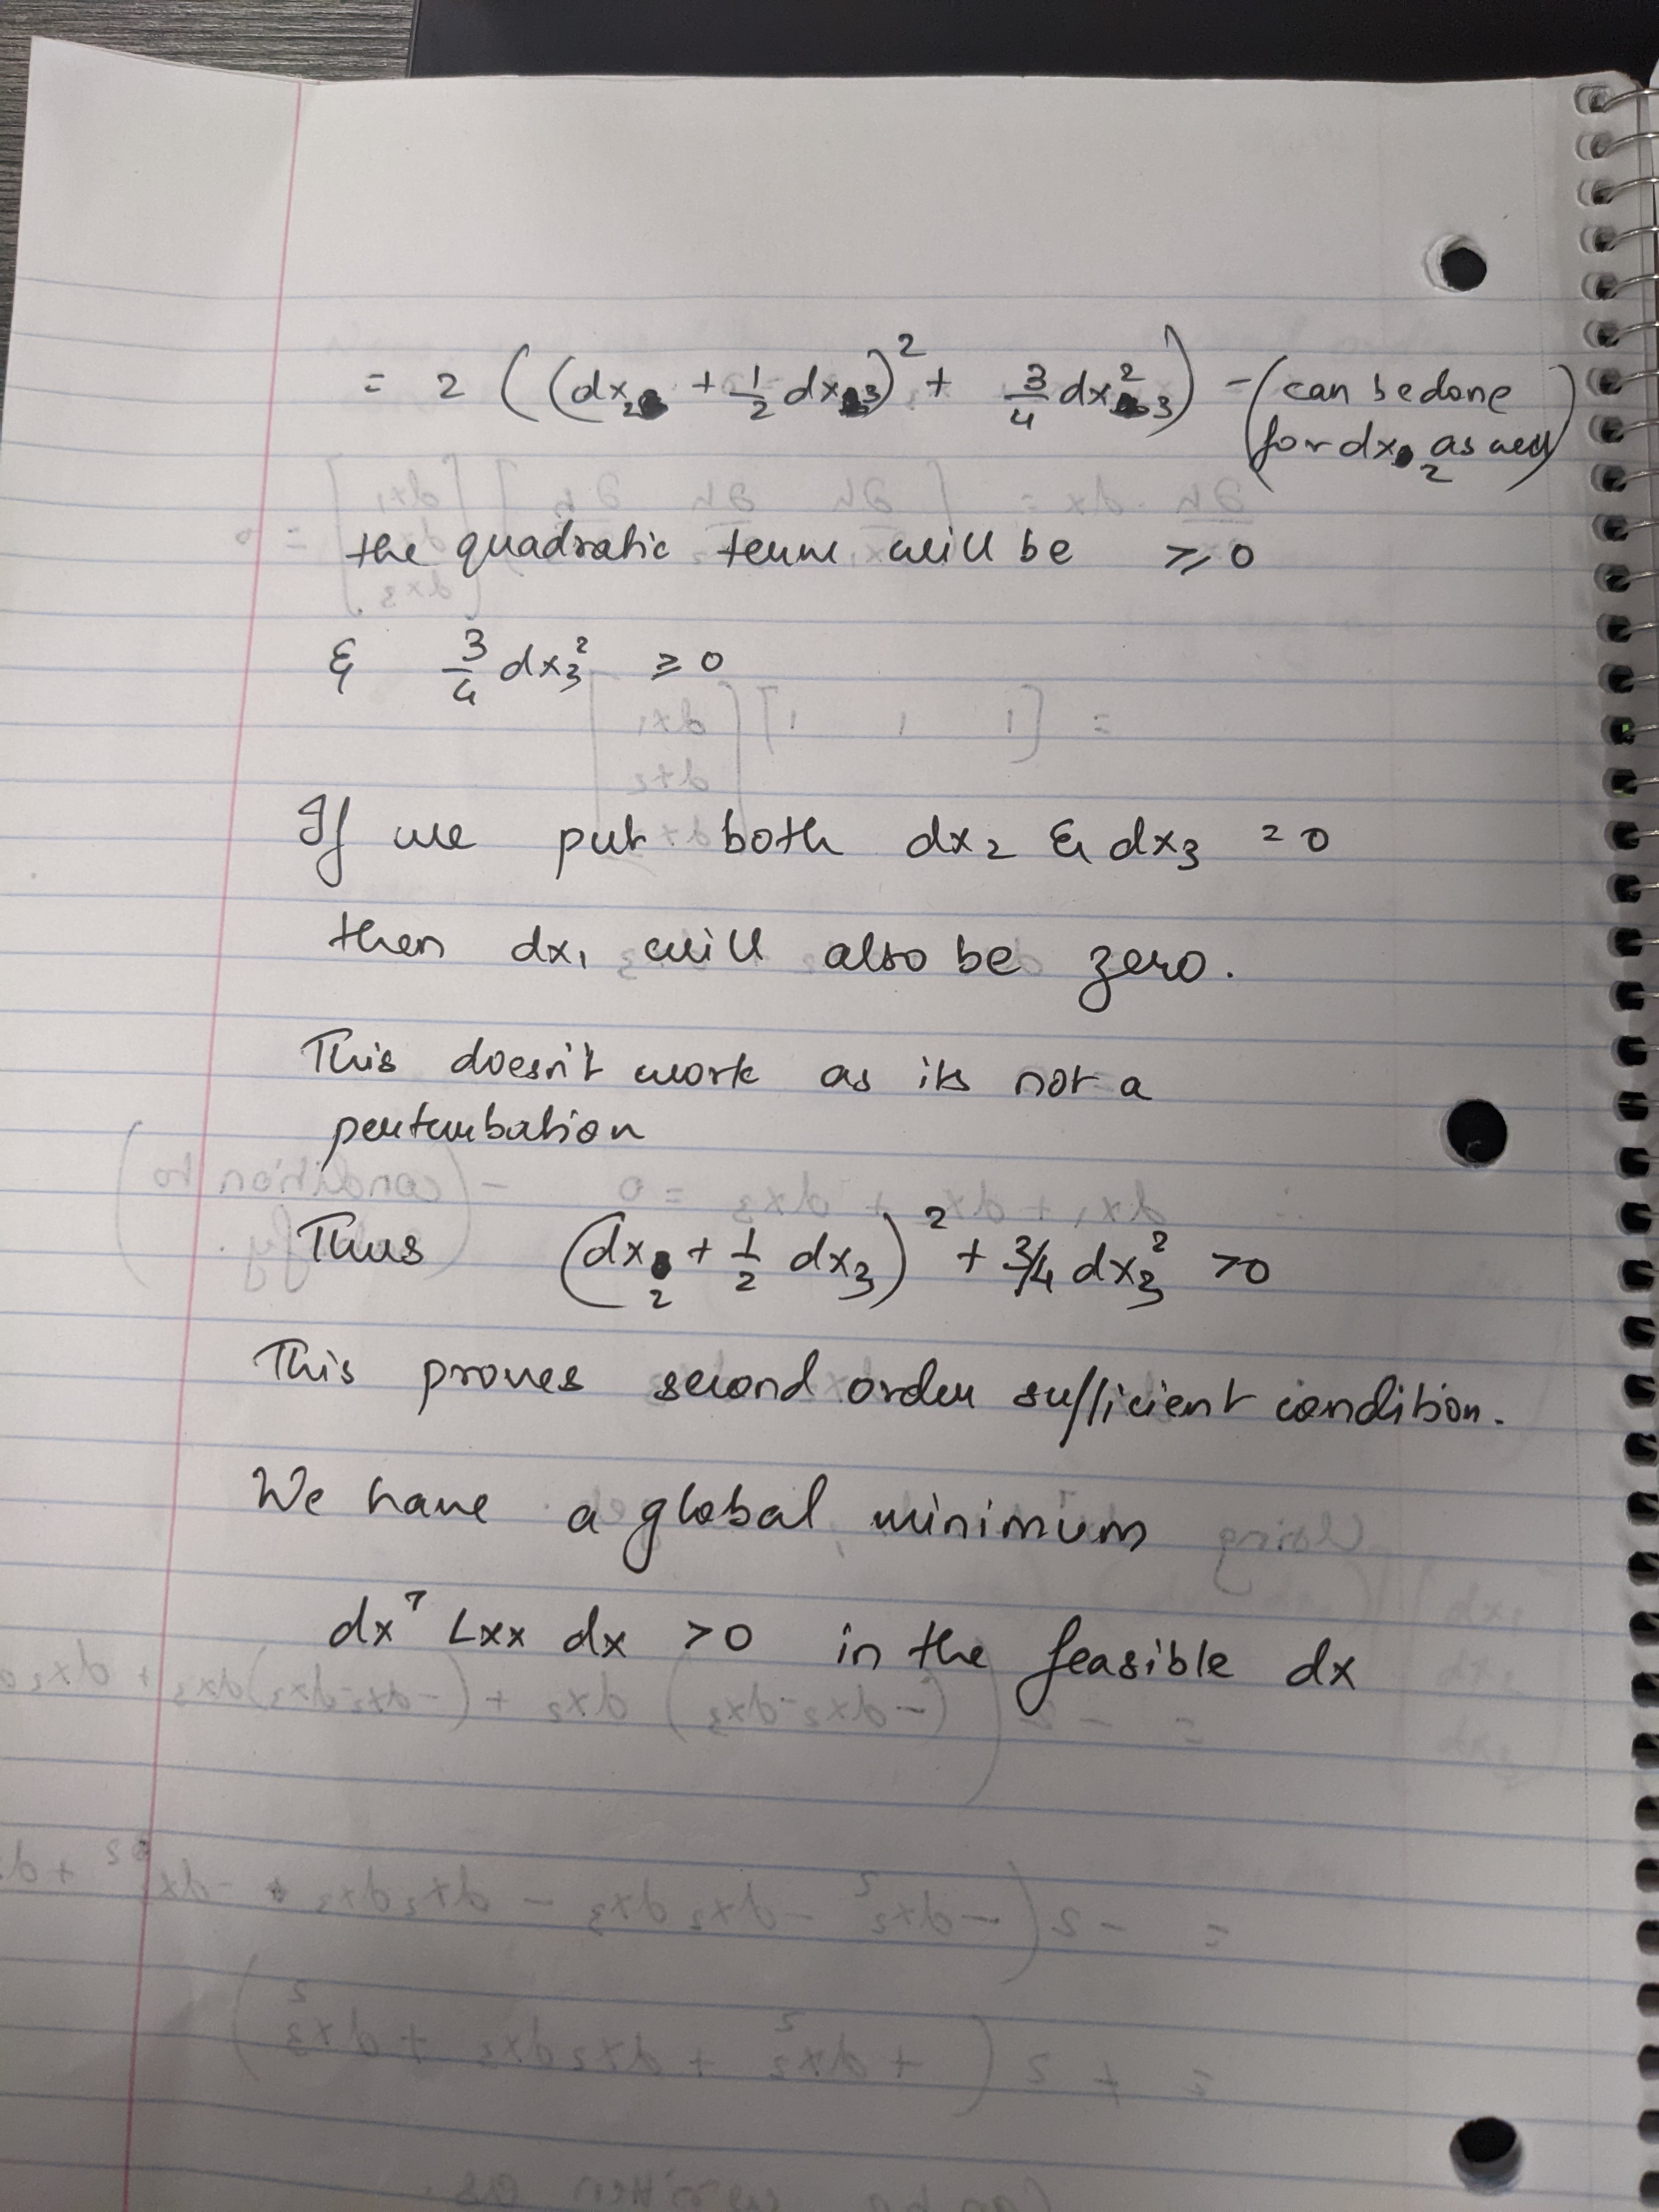 = 2 ((dx₂ + 1/2 dx₃)² + 3/4 dx₃²) - (can be done
for dx₂ as well)
the quadratic term will be ≥ 0
& 3/4 dx₃² ≥ 0
If we put both dx₂ & dx₃ = 0
then dx₁ will also be zero.
This doesn't work as its not a
perturbation
Thus (dx₂ + 1/2 dx₃)² + 3/4 dx₃² >0
This proves second order sufficient condition.
We have a global minimum
dxᵀ Lxx dx >0 in the feasible dx